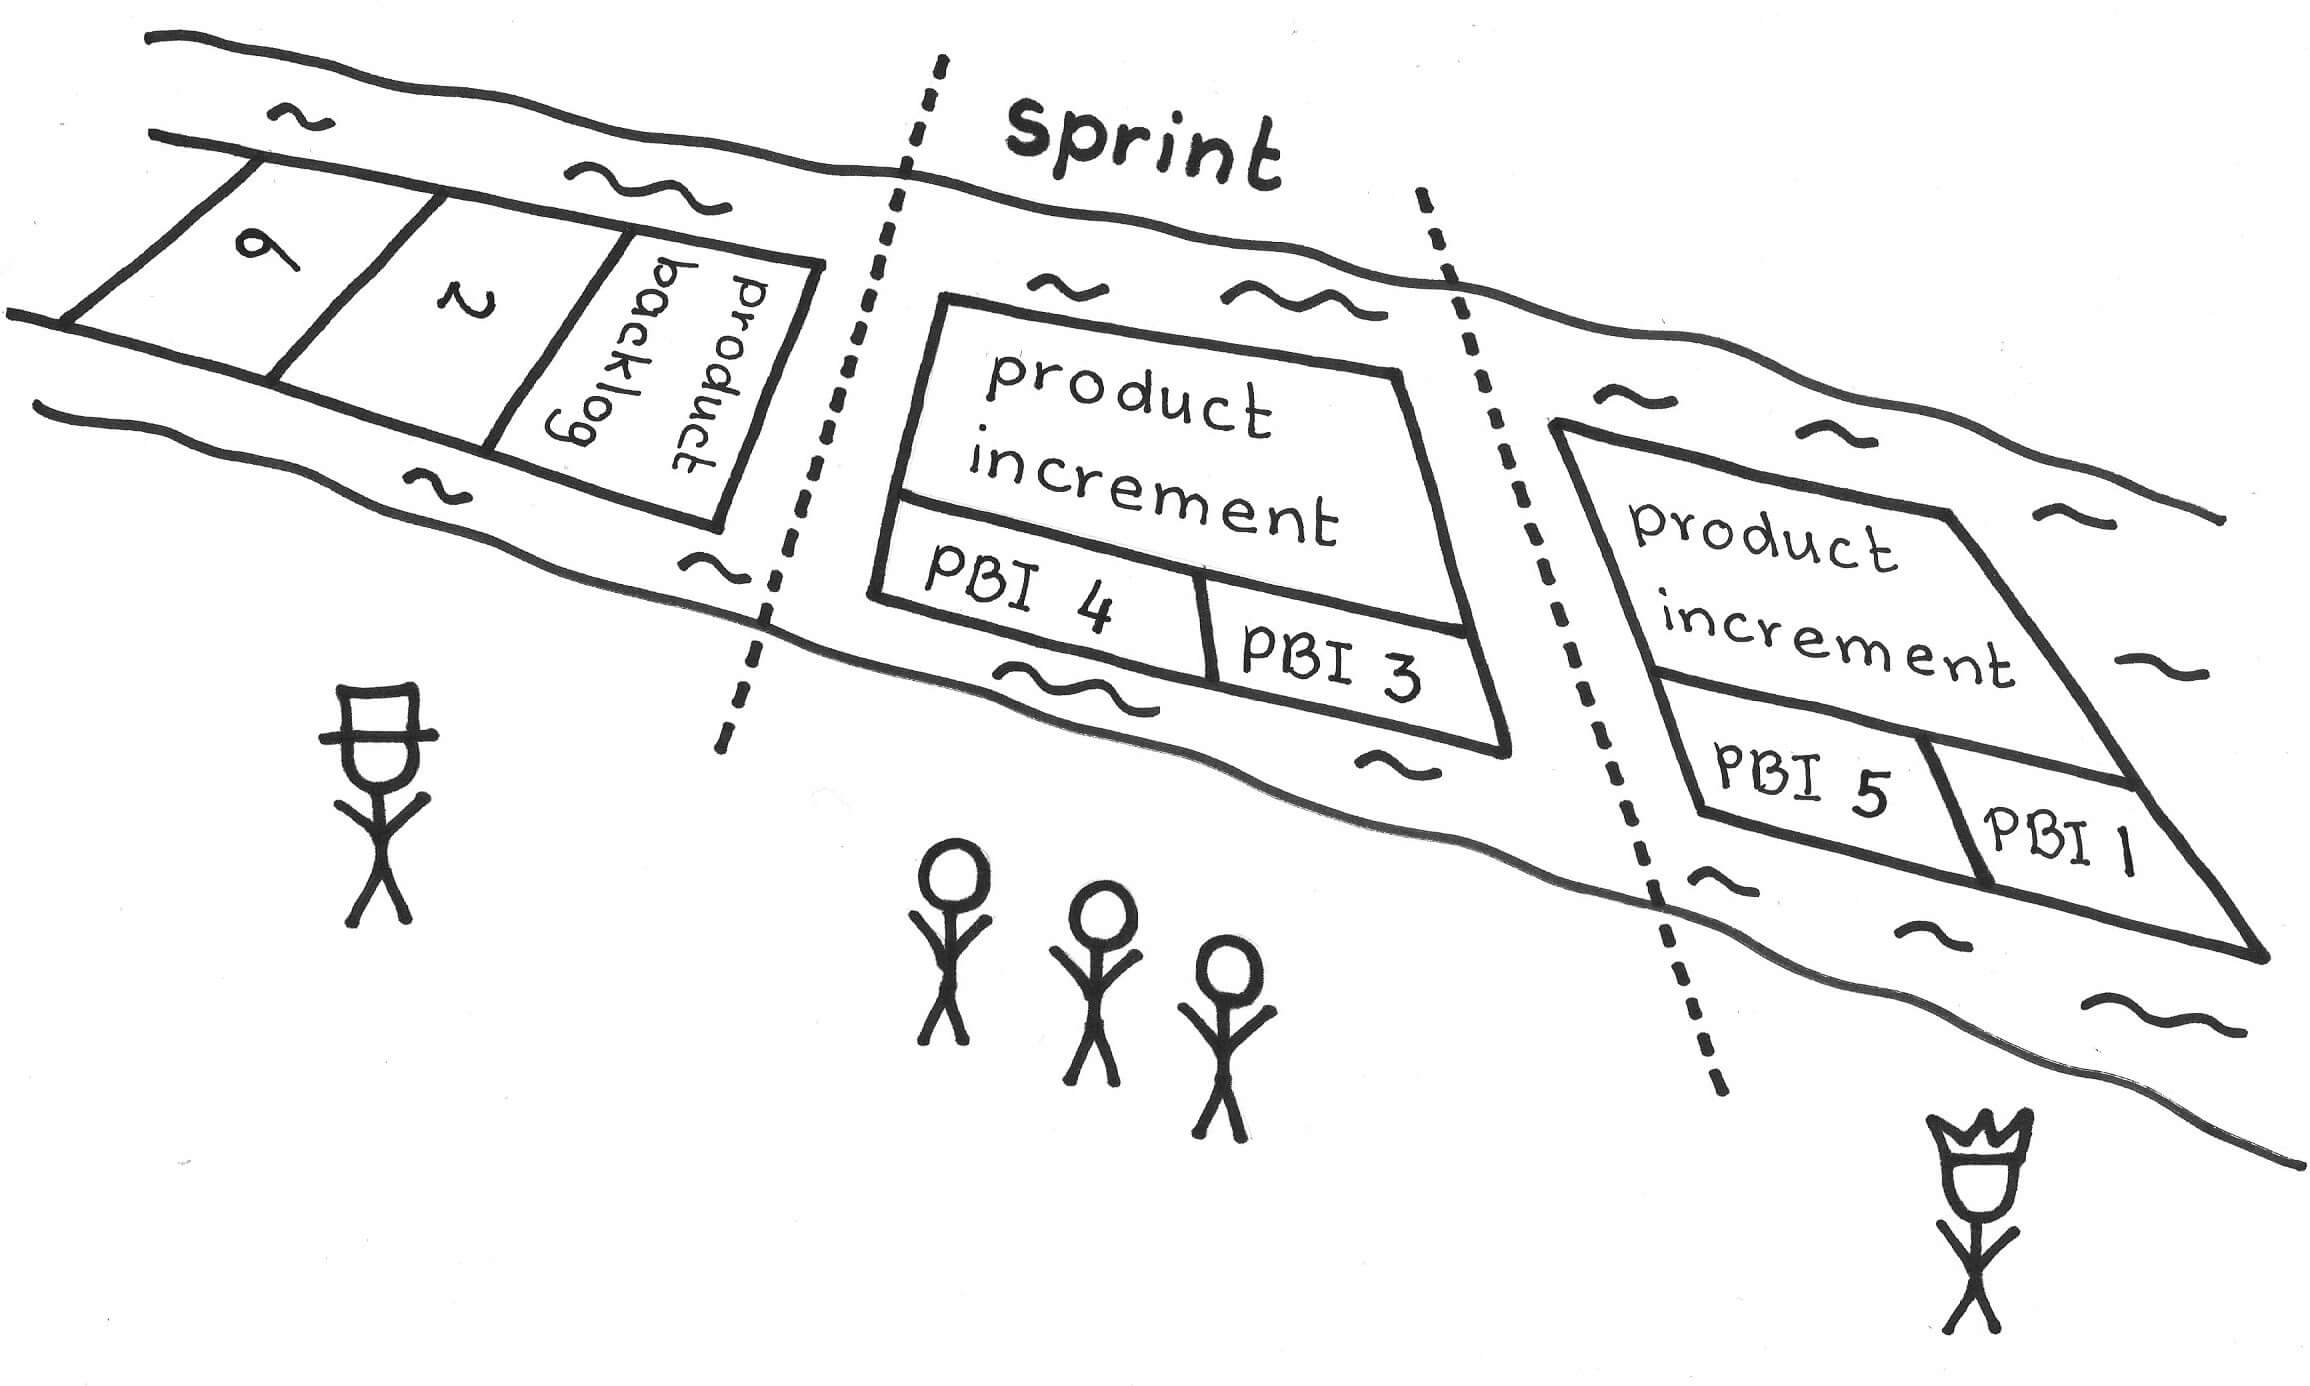 sprint
6
2
product
backlog
product
increment
PBI 4
PBI 3
product
increment
PBI 5
PBI 1